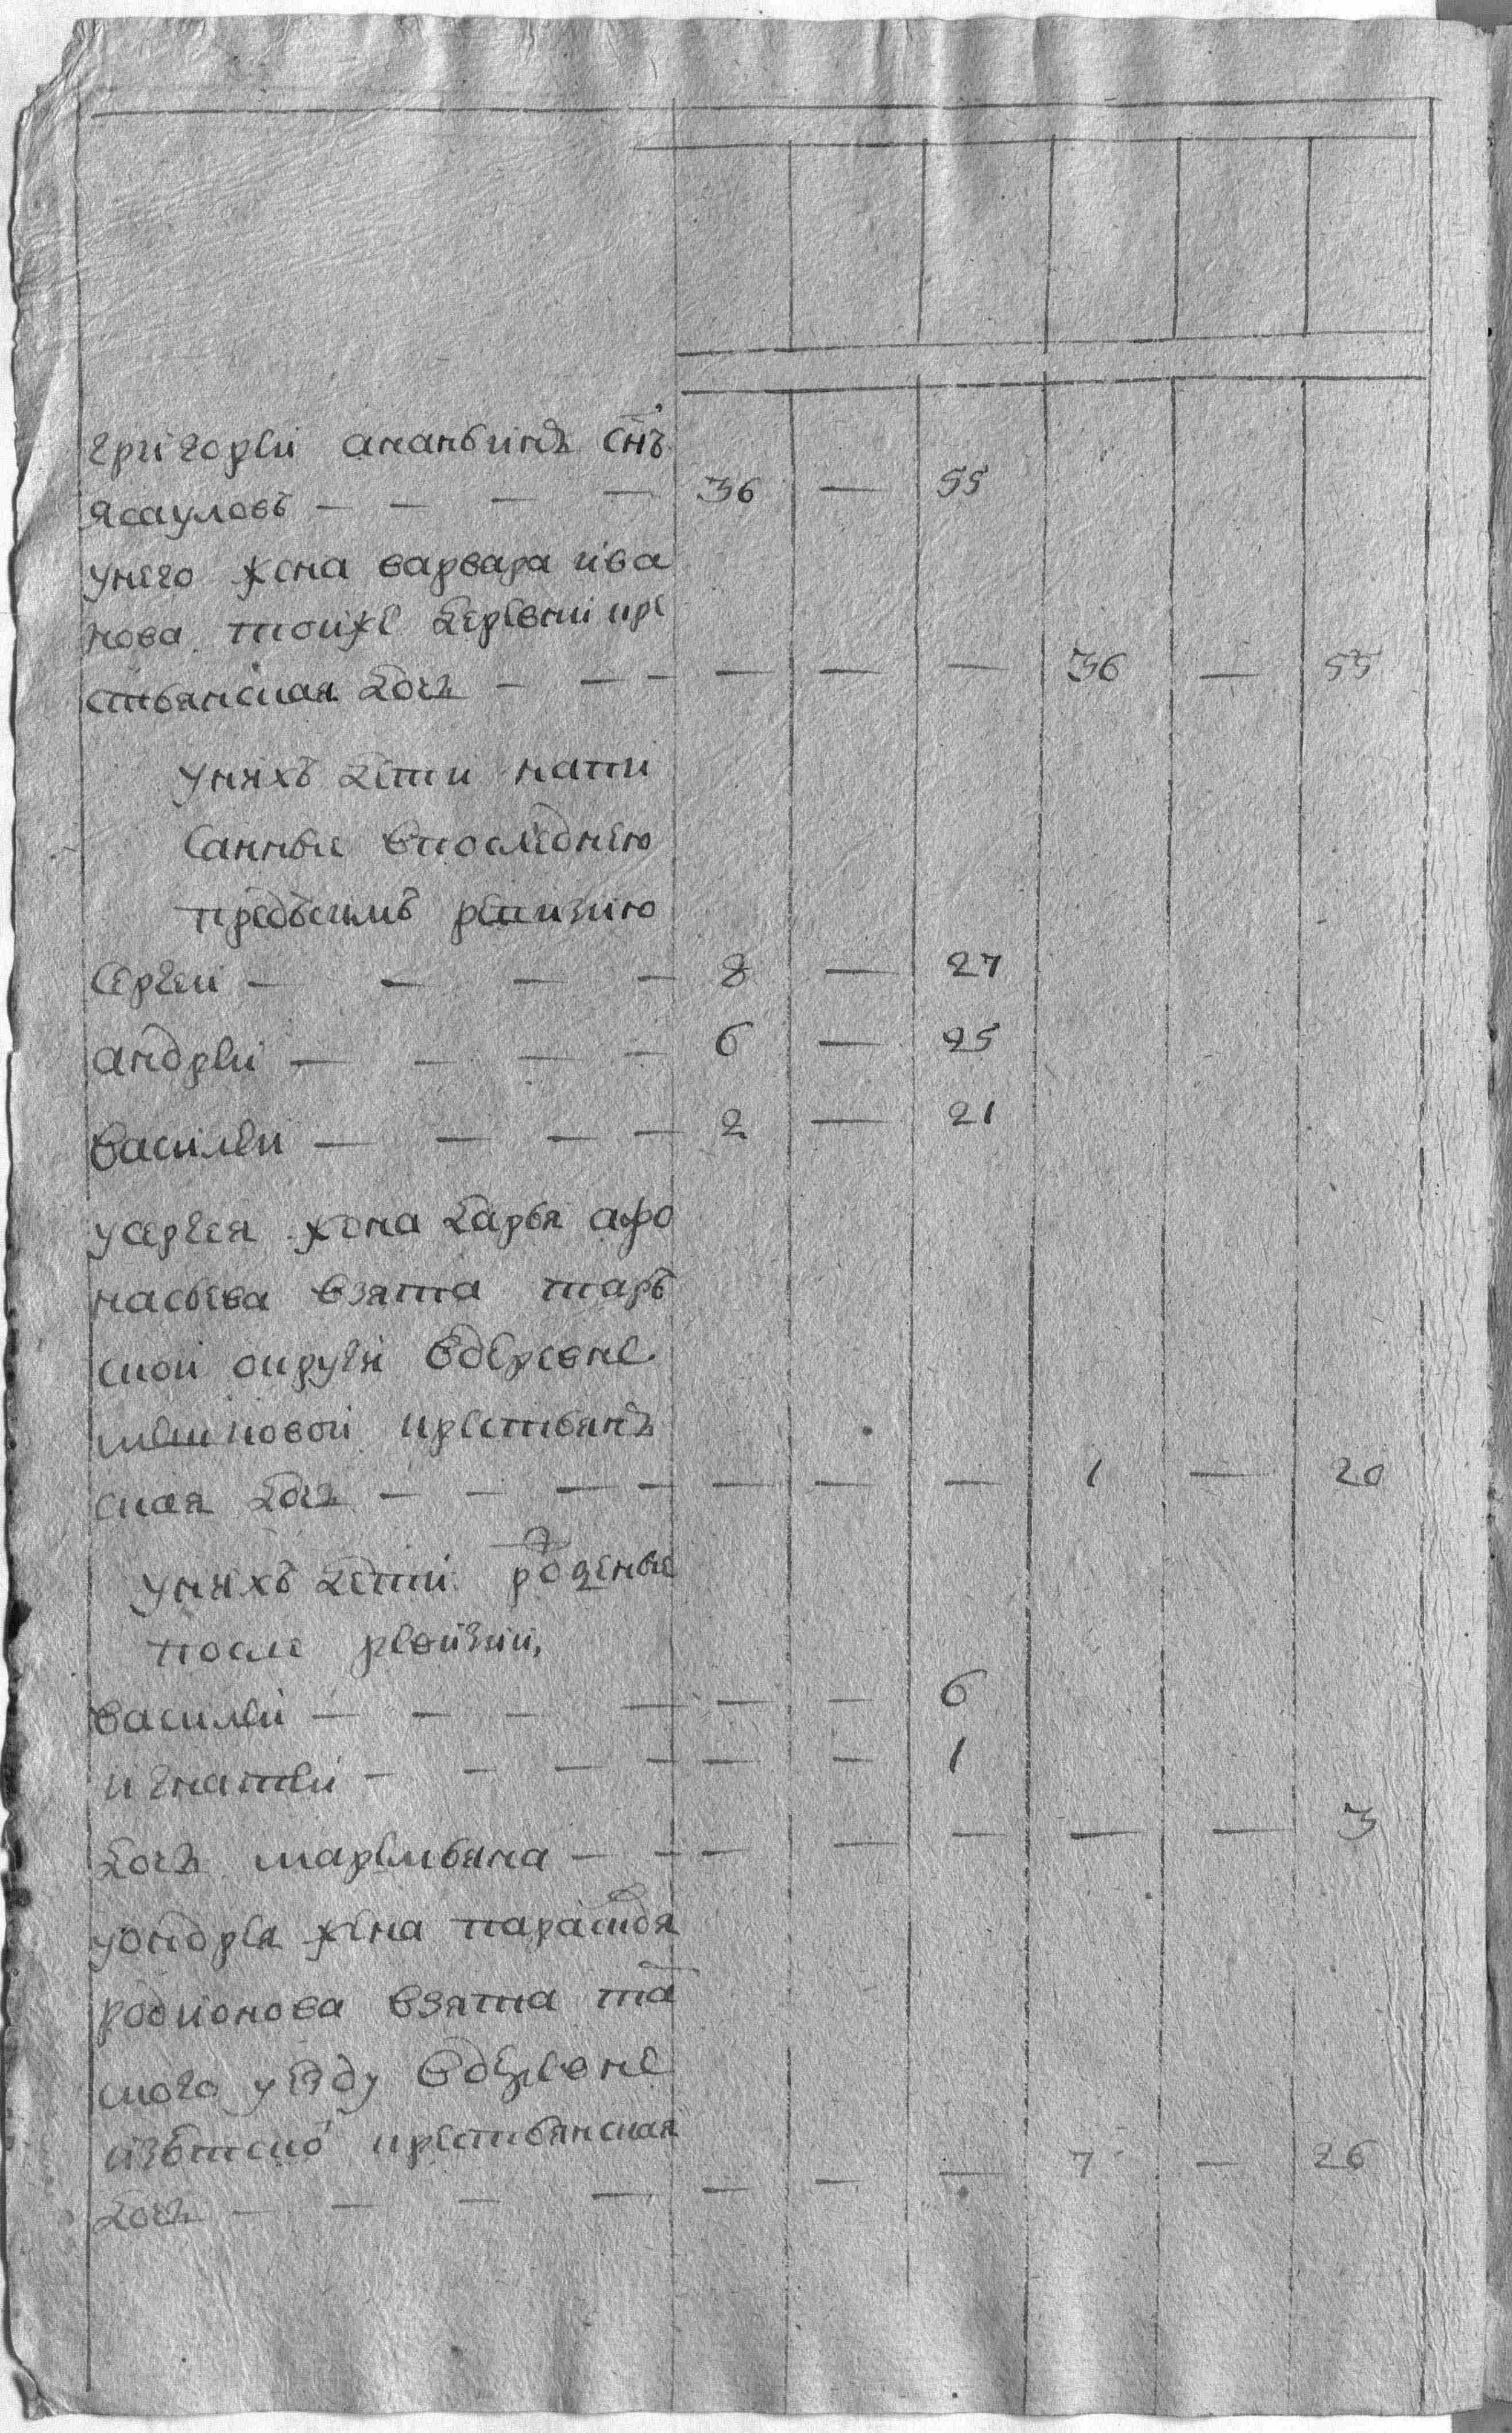 григореи ананьинъ снъ
ясауловъ — — — — 36 — 55
унего жена варвара ива
нова тоиже деревни кре
стьянская дочь — — — — — — 36 — 55
унихъ дети напи
санные впоследнею
предъсимъ ревизию
Сергеи — — — — 8 — 27
андреи — — — — 6 — 25
василеи — — — — 2 — 21
усергея жена дарья афо
насьева взята таръ
скои округи вдеревне
крестьянъ
ская дочь — — — — — — — 1 — 20
унихъ дети рожденые
после ревизии,
василеи — — — — — — 6
игнатеи — — — — — — 1
дочь маремьяна — — — — — — — 3
уондрея жена парасковя
родионова взята та
ского уезду вдеревне
крестьянская
дочь — — — — — — — 7 — 26